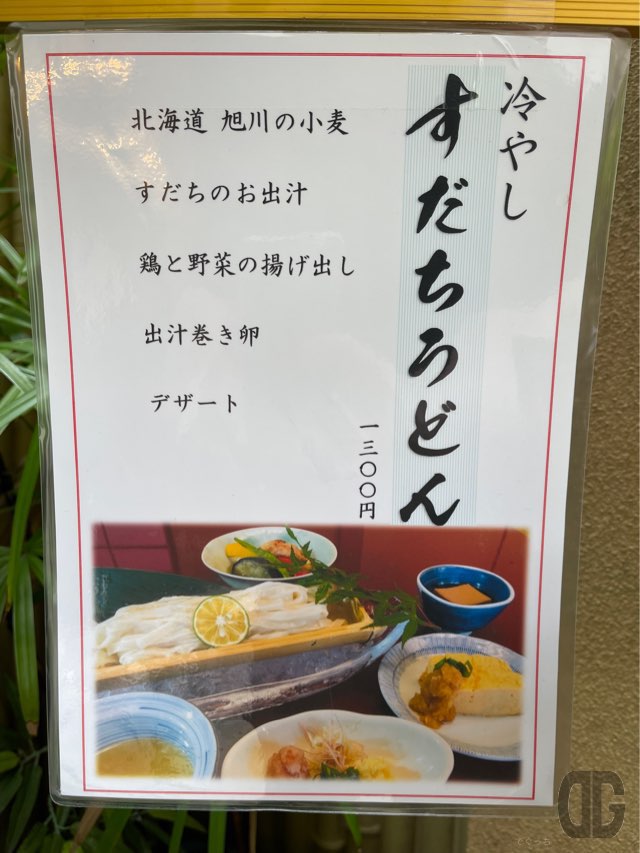 冷やし
すだちうどん
北海道 旭川の小麦
すだちのお出汁
鶏と野菜の揚げ出し
出汁巻き卵
デザート
一三〇〇円
DG
でぐっち